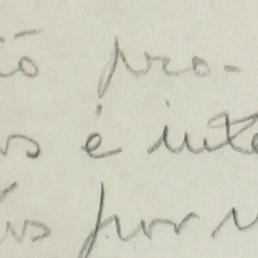 ão pro-
os é inte
ós por u